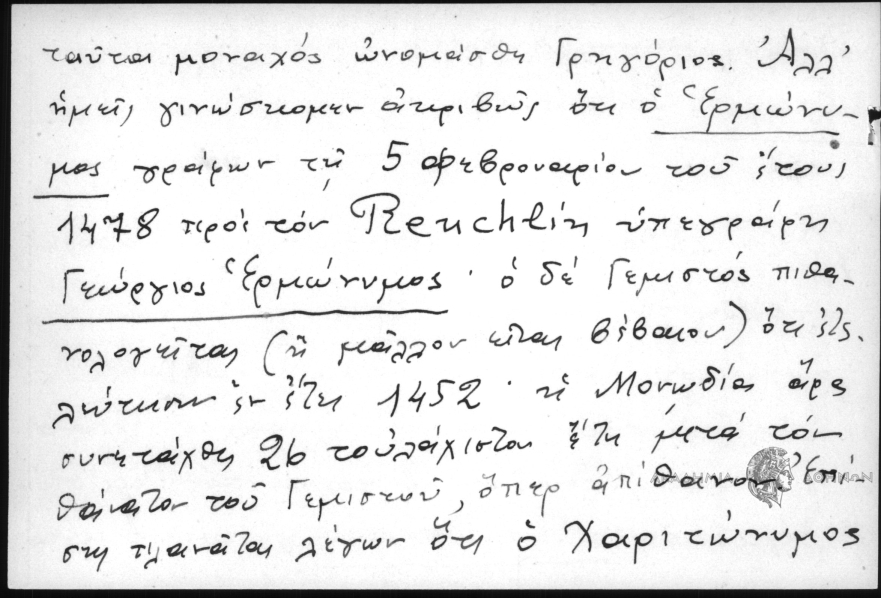 ταῦτα μοναχός ὠνομάσθη Γρηγόριος. Ἀλλ'
ἡμεῖς γινώσκομεν ἀκριβῶς ὅτι ὁ Ἑρμώνυ-
μος γράφων τῇ 5 Φεβρουαρίου τοῦ ἔτους
1478 πρός τόν Reuchlin ὑπεγράφη
Γεώργιος Ἑρμώνυμος · ὁ δέ Γεμιστός πιθα-
νολογεῖται (ἤ μᾶλλον εἶναι βέβαιον) ὅτι ἐτε-
λεύτησεν ἐν ἔτει 1452 · ἡ Μονωδία ἄρα
συνετάχθη 26 τοὐλάχιστον ἔτη μετά τόν
θάνατον τοῦ Γεμιστοῦ, ὅπερ ἀπίθανον. Ἐπί-
σης πλανᾶται λέγων ὅτι ὁ Χαριτώνυμος
ΑΚΑΔΗΜΙΑ ΑΘΗΝΩΝ